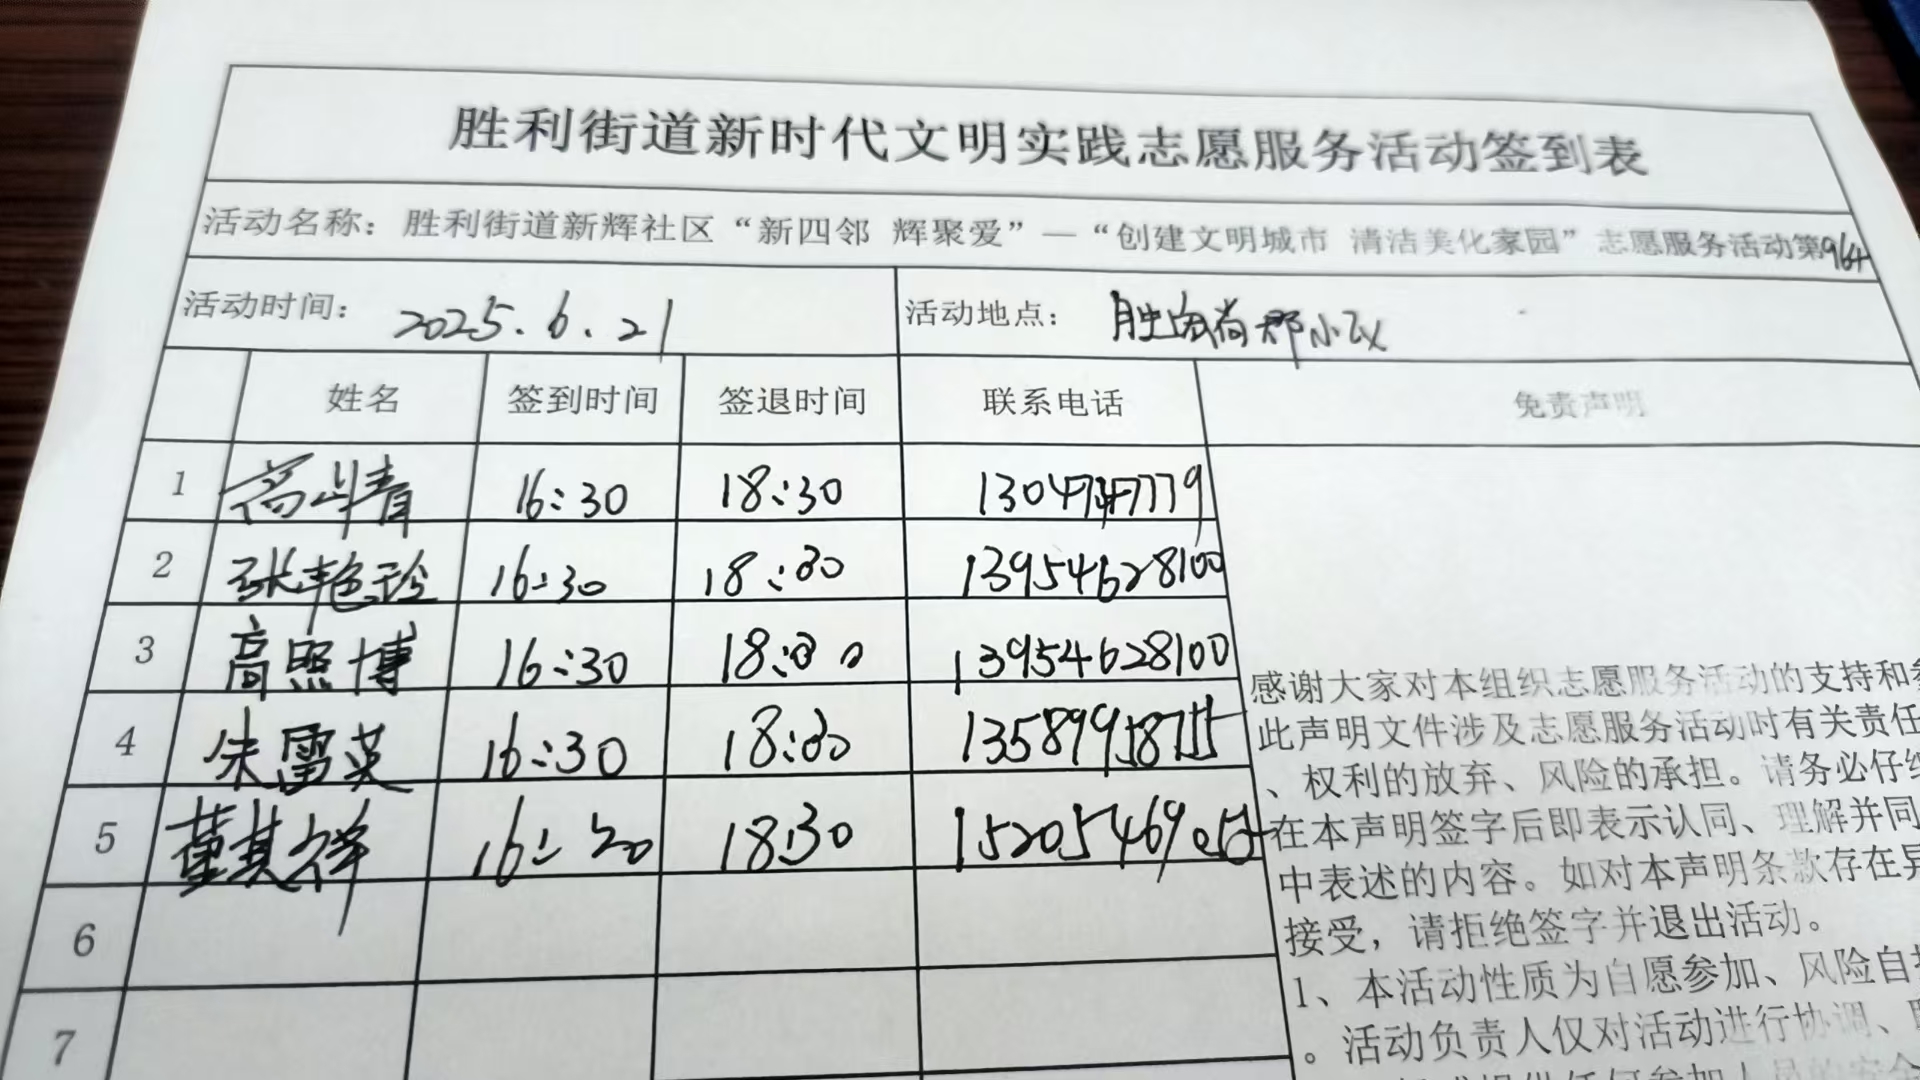 胜利街道新时代文明实践志愿服务活动签到表
活动名称：胜利街道新辉社区“新四邻 辉聚爱”—“创建文明城市 清洁美化家园”志愿服务活动第964
活动时间：2025.6.21 活动地点：胜
姓名 签到时间 签退时间 联系电话 免责声明
1 青 16:30 18:30
2 张艳珍 16:30 18:30 13954628100
3 高照博 16:30 18:30 13954628100
4 朱雷英 16:30 18:30
5 董其祥 18:30
6
7
感谢大家对本组织志愿服务活动的支持和
此声明文件涉及志愿服务活动时有关责任
、权利的放弃、风险的承担。请务必仔
在本声明签字后即表示认同、理解并同
中表述的内容。如对本声明条款存在异
接受，请拒绝签字并退出活动。
1、本活动性质为自愿参加、风险自
。活动负责人仅对活动进行协调、